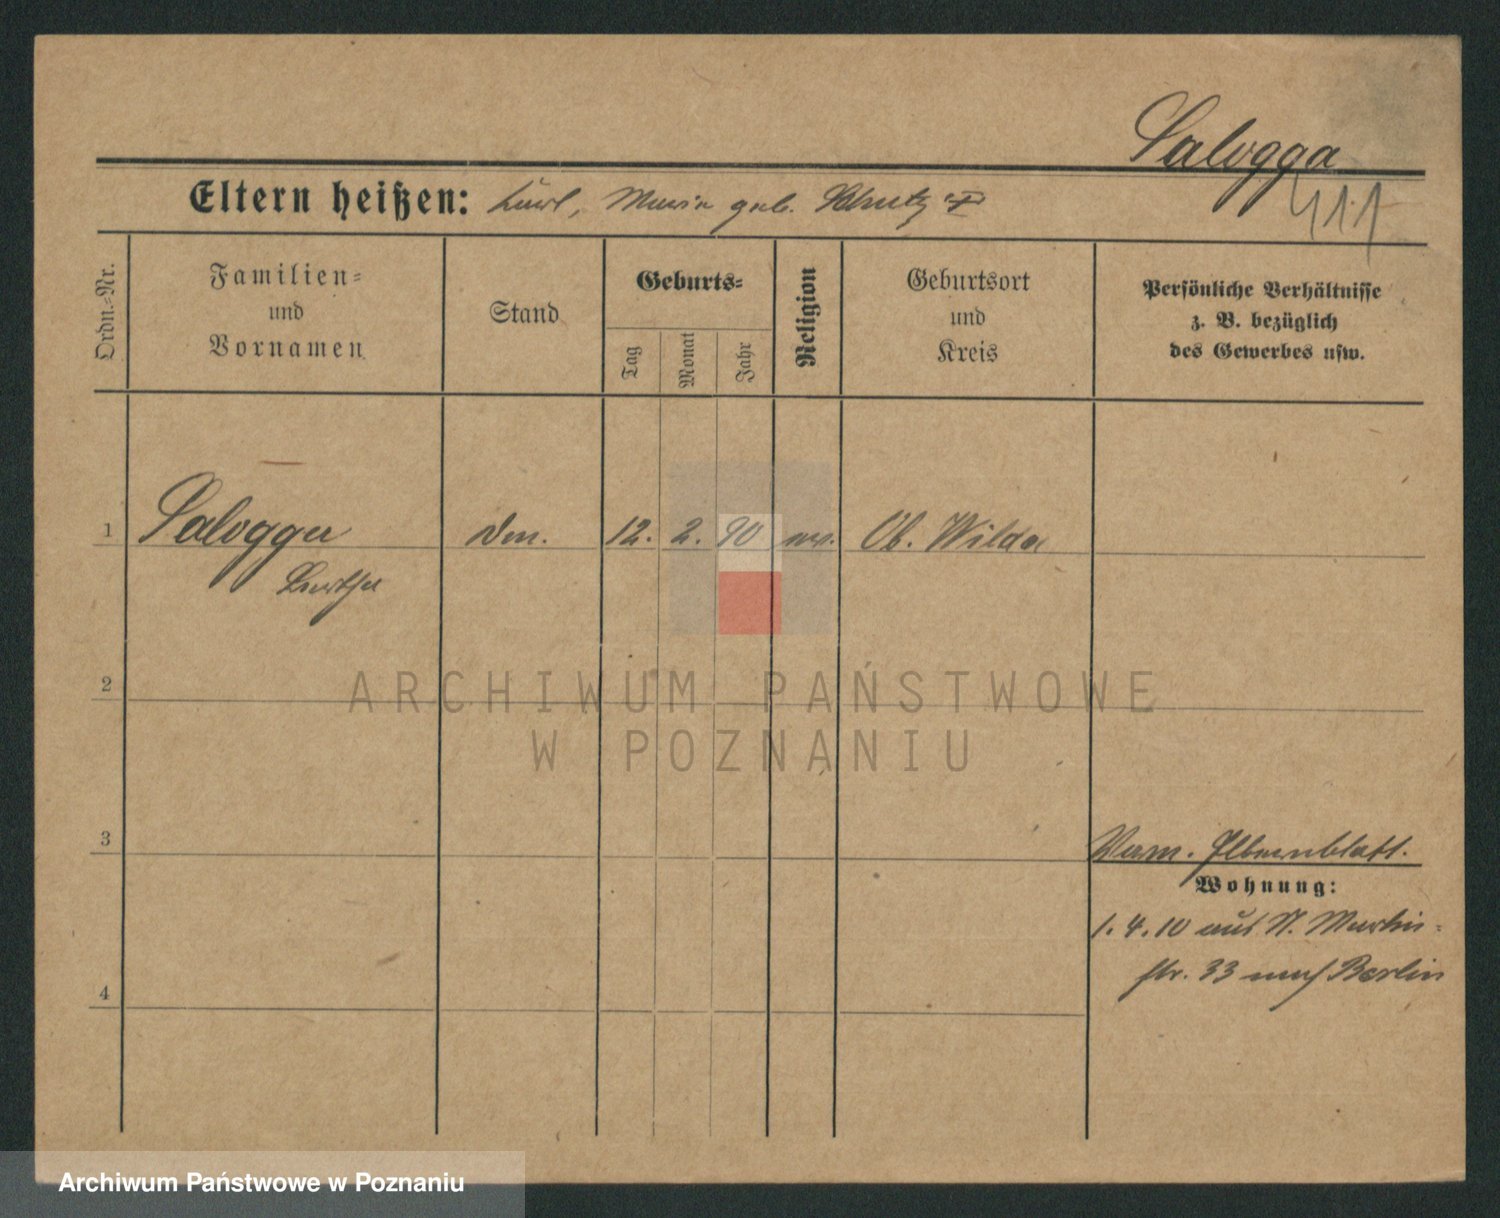 Salogga
411
Eltern heißen: Karl, Maria geb. Schulz
Ordn.-Nr.
Familien-
und
Vornamen
Stand
Geburts-
Tag
Monat
Jahr
Religion
Geburtsort
und
Kreis
Persönliche Verhältnisse
z. B. bezüglich
des Gewerbes usw.
1 Salogga 12. 2. 90 ev. Ob. Wilda
Bertha
2
ARCHIWUM PAŃSTWOWE
W POZNANIU
3
Wohnung:
1. 4. 10 aus St. Martin-
str. 33 nach Berlin
4
Archiwum Państwowe w Poznaniu